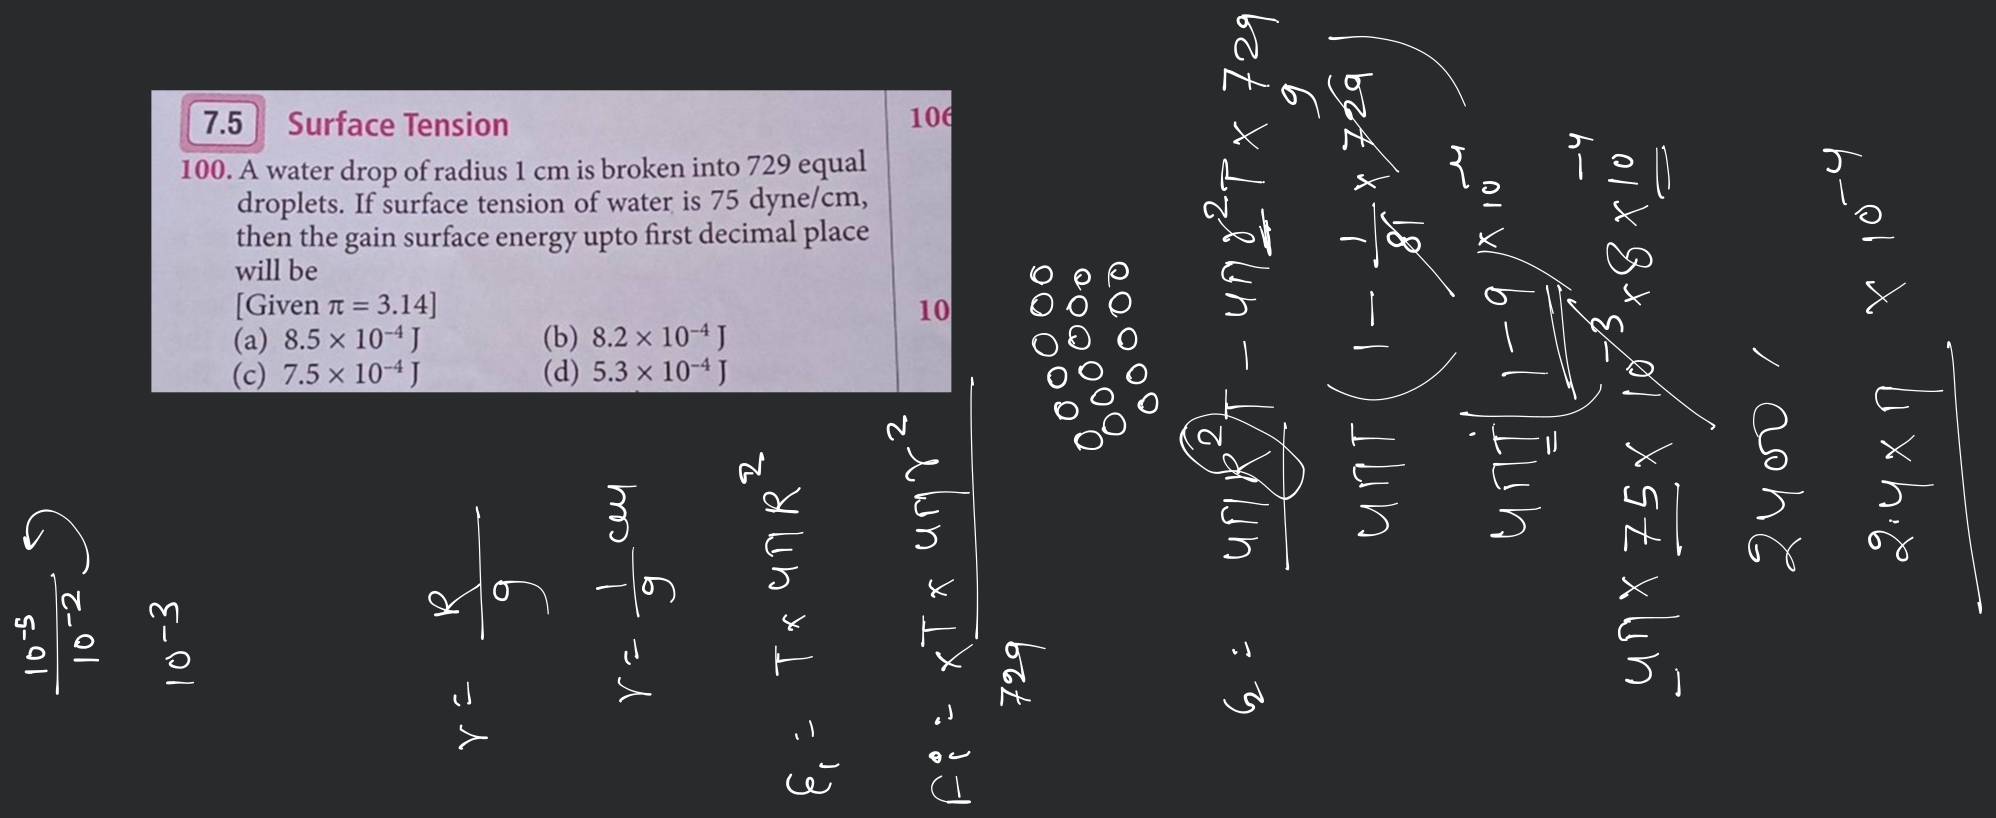 7.5 Surface Tension
100. A water drop of radius 1 cm is broken into 729 equal
droplets. If surface tension of water is 75 dyne/cm,
then the gain surface energy upto first decimal place
will be
[Given π = 3.14]
(a) 8.5 × 10⁻⁴ J (b) 8.2 × 10⁻⁴ J
(c) 7.5 × 10⁻⁴ J (d) 5.3 × 10⁻⁴ J
106
10
10⁻⁵
10⁻²
10⁻³
r = R/9
r = 1/9 cm
E₁ = T × 4πR²
729 × T × 4πr²
4πR²T - 4πr²T × 729
4πT (1 - 1/81 × 729)
9
4πT [1 - 9] × 10⁻⁴
4π × 75 × 10⁻³ × 8 × 10⁻⁴
2400
2.4 × π × 10⁻⁴